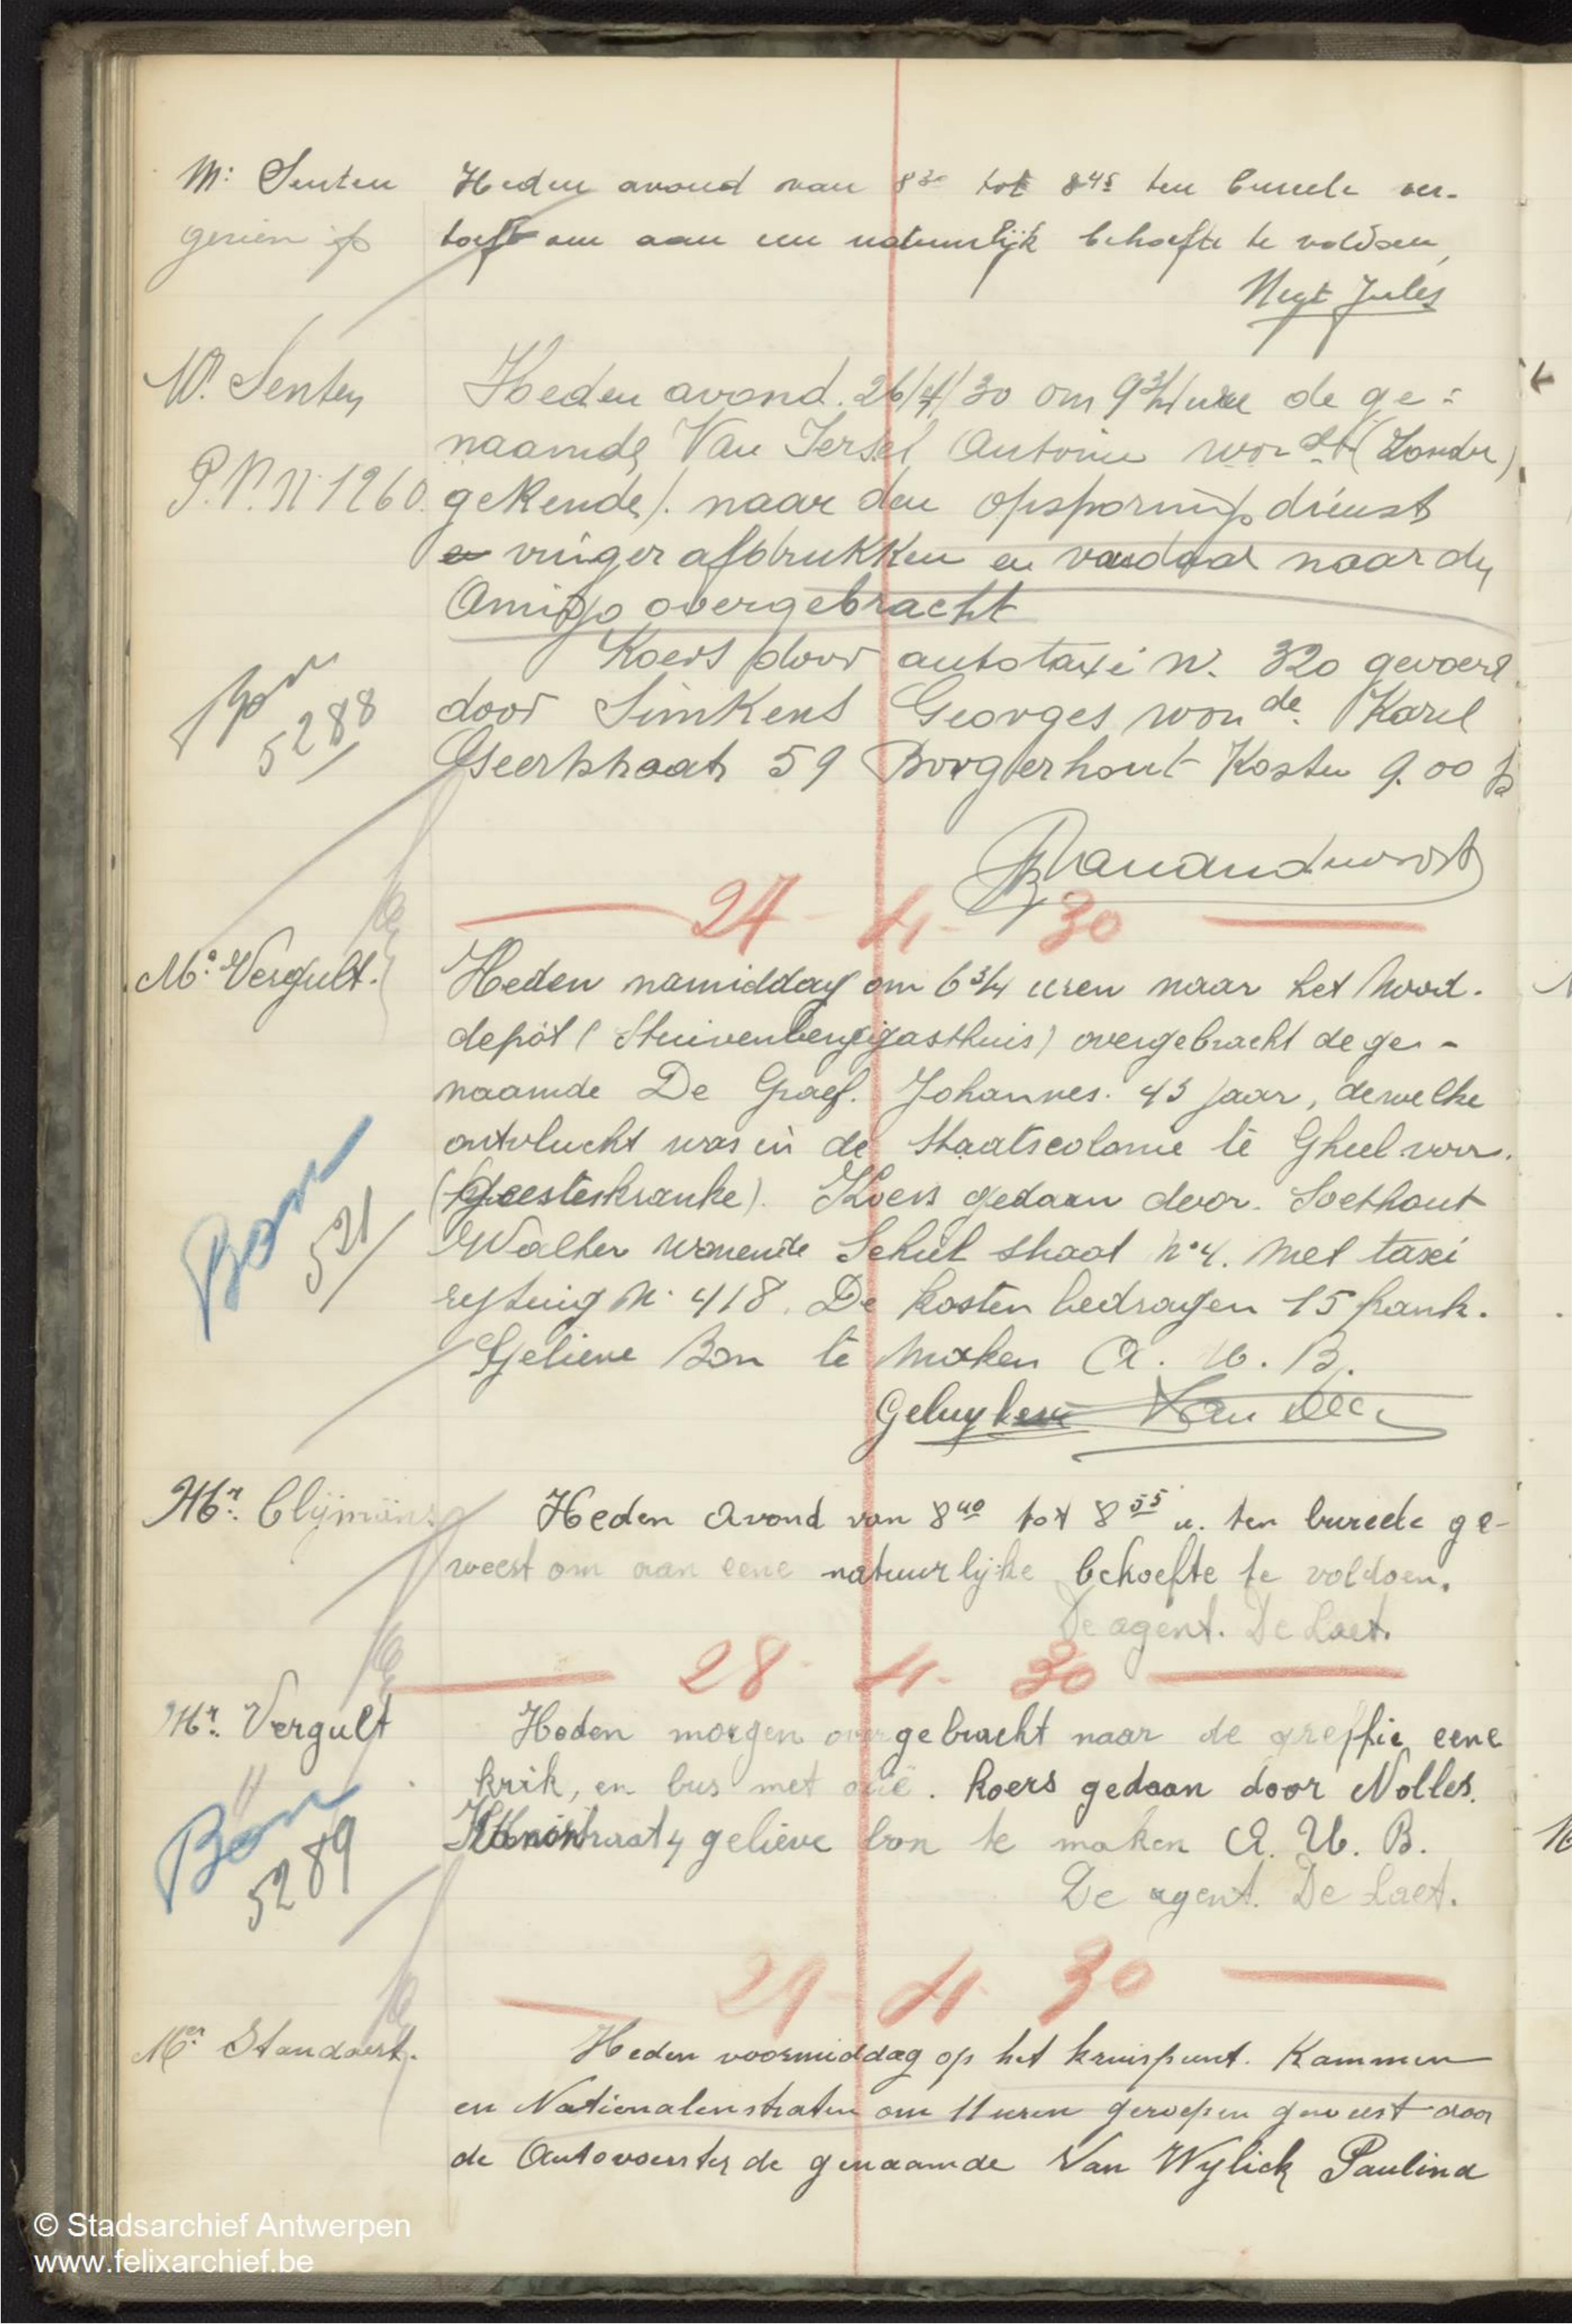 Mr Senten
Heden avond van 8 30 tot 8 45 ten bureele ver-
gezien
toeft om aan een natuurlijk behoefte te voldoen,
Neyt Jules
Mr. Senten
Heden avond. 26/4/30 om 9 3/4 ure de ge=
naamde Van Iersel Antoine won de (Zonder)
P.V. N. 1260.
gekende). naar den opsporings dienst
en vinger afdrukken en vandaar naar de
Amigo overgebracht
Koers door autotaxi N. 320 gevoerd
Bon
door Simkens Georges won de. Karel
5288
Geertstraat 59 Borgerhout Kosten 9.00 fr
27 - 4 - 30
Mr. Vergult.
Heden namiddag om 6 3/4 uren naar het Nood.
depôt (Stuivenberggasthuis) overgebracht de ge-
naamde De Graef. Johannes. 43 jaar, dewelke
ontvlucht was in de Staatscolonie te Gheel voor.
Bon
(Geesteskranke). Koers gedaan door. Soethout
521
Walter wonende Schul straat n° 4. met taxi
rijtuig N. 418. De kosten bedragen 15 frank.
Gelieve Bon te maken A. U. B.
Geluykens Van
Mr. Clijmans
Heden avond van 8 40 tot 8 55 u. ten bureele ge-
weest om aan eene natuurlijke behoefte te voldoen.
De agent. De Laet.
28 - 4 - 30
Mr. Vergult
Heden morgen overgebracht naar de greffie eene
krik, en bus met olie. koers gedaan door Nolles.
Bon
4 gelieve bon te maken A. U. B.
5289
De agent. De Laet.
29 - 4 - 30
Mr. Standaert.
Heden voormiddag op het kruispunt. Kammen
en Nationalenstraten om 11 uren geroepen geweest door
de Autovoerster de genaamde Van Wylick Paulina
© Stadsarchief Antwerpen
www.felixarchief.be